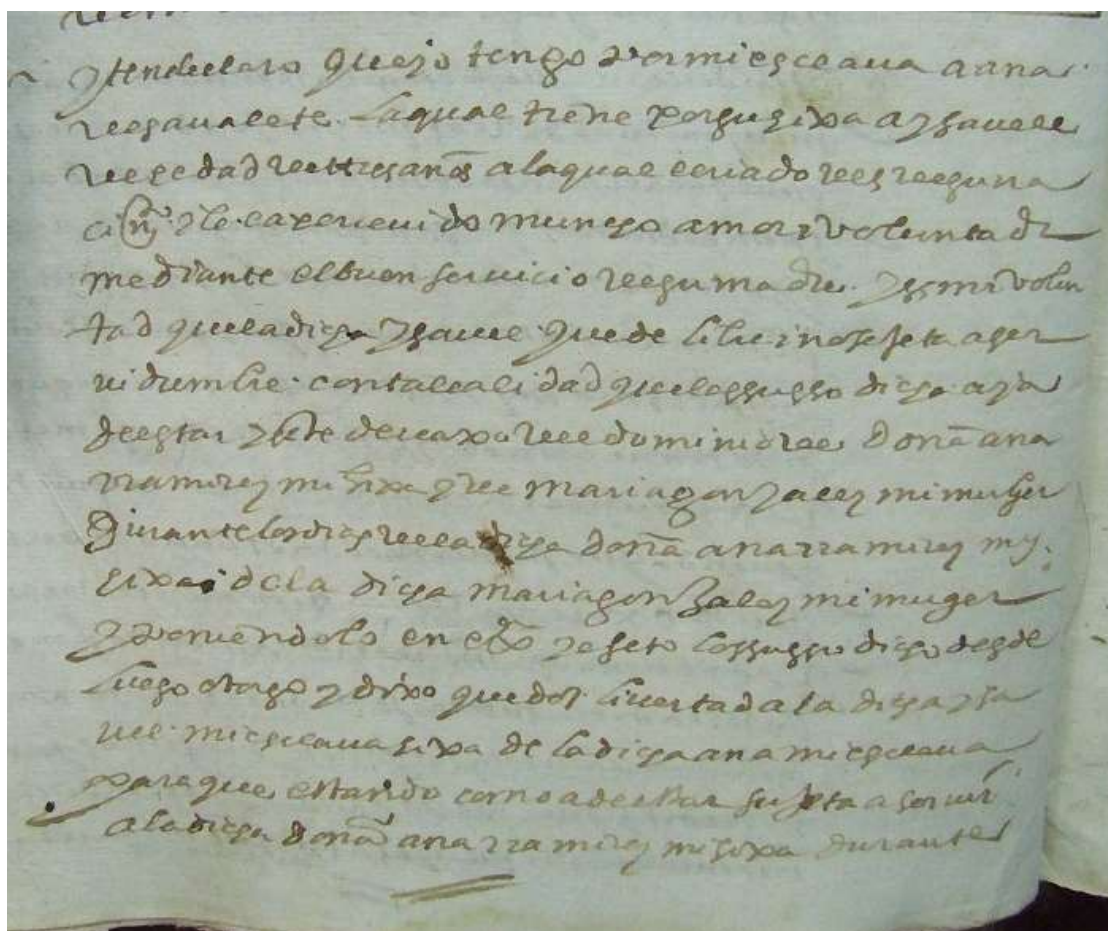 yten declaro que yo tengo por mi esclaua a ana
de gaualete la qual tiene por su hixa a ysauel
de hedad de tres años a la qual e criado desde su na
ci mi.º y le e aperceuido mucho amor y voluntad
mediante el buen seruicio de su madre y es mi volun
tad que la dicha ysauel quede libre i no sujeta a ser
uidumbre con tal calidad que lo susso dicho aya
de estar y este debaxo de el dominio de doña ana
rramirez mi hixa y de maria gonzalez mi muger
durante los dias de la dicha doña ana rramirez my
hixa i de la dicha maria gonzalez mi muger
y poniendolo en efeto lo susso dicho desde
luego otorgo y dixo que doi liuertad a la dicha ysa
uel mi esclaua hixa de la dicha ana mi esclaua
para que estando como a de estar sujeta a seruir
a la dicha doña ana rramirez mi hixa durante